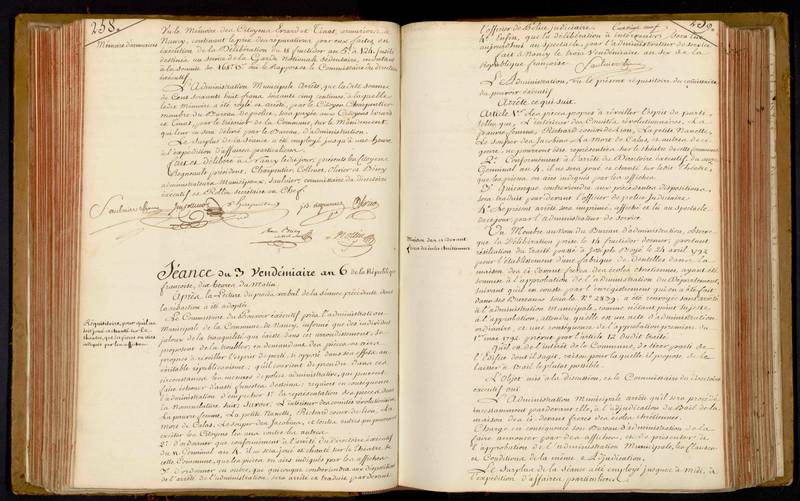 258.
Mémoire d'armuriers
Vu le Mémoire des Citoyens Evrard et Cinot, armuriers à
Nancy, contenant le prix des réparations par eux faites, en
exécution de la Délibération du 11 fructidor an 5e à 124 fusils
destinés au service de la Garde Nationale sédentaire,
à la somme de 168# 15s vu le Rapport et le Commissaire du directoire
exécutif.
L'Administration Municipale Arrête, que la dite somme
de Cent soixante huit francs soixante cinq centimes, à laquelle
le dit Mémoire a été réglé et arrêté, par le Citoyen Charpentier
membre du Bureau de police, sera payée aux Citoyens Evrard
et Cinot, par le trésorier de la Commune, sur le Mandement
qui leur en sera délivré par le Bureau d'administration.
Le Surplus de la séance a été employé jusqu'à une heure
à l'expédition d'affaires particulières.
fait et délibéré à Nancy lesdits jour, présents les Citoyens
président, Charpentier, Collenot, Olivier et
administrateurs Municipaux, Saulnier, commissaire du directoire
exécutif et Rollin secrétaire en Chef.
Séance du 3 Vendémiaire an 6 de la République
française, dix heures du Matin
Réquisitoire, pour qu'il ne
soit joué et chanté sur le
théâtre, que les pièces ou airs
indiqués par les affiches
Après la Lecture du procès verbal de la séance précédente dont
la rédaction a été adoptée.
Le Commissaire du Pouvoir exécutif près l'administration
Municipale de la Commune de Nancy, informé que des individus
jaloux de la tranquilité qui existe dans cet arrondissement, se
proposent de la troubler, en demandant des pièces ou airs
propres à réveiller l'esprit de parti, si opposé dans ses effets au
véritable républicanisme; qu'il convient de prendre dans ces
circonstances les mesures de police administrative, qui peuvent
faire échouer d'aussi funestes desseins; requiert en conséquence
l'administration d'empêcher 1° la représentation des pièces dont
la Nomenclature suit; savoir, L'intérieur des comités révolutionnaires,
La pauvre femme, La petite Nanette, Richard cœur de lion, La
Mort de Calas, Le Souper des Jacobins, et toutes autres qui pourroient
exciter les Citoyens les uns contre les autres.
2° d'ordonner que conformément à l'arrêté du directoire exécutif
du Germinal an 4, il ne sera joué et chanté sur le théâtre de
cette Commune, que les pièces ou airs indiqués par les affiches
3° d'ordonner en outre, que quiconque contreviendra aux dispositions
de l'arrêté de l'administration, sera arrêté et traduit par devant
259.
l'officier de Police judiciaire.
4° Enfin, que la délibération à intervenir sera lue
aujourd'hui au spectacle, par l'administrateur de service
fait à Nancy le trois Vendémiaire an six de la
République française. Saulnier
L'Administration, vu le présent réquisitoire du commissaire
du pouvoir exécutif
Arrête ce qui suit.
Article 1er Les pièces propres à réveiller l'esprit de parti
telles que, L'intérieur des Comités révolutionnaires, La
pauvre femme, Richard cœur de Lion, La petite Nanette,
Le Souper des Jacobins, La Mort de Calas, et autres de ce
genre; ne pourront être représentées sur le théâtre de cette Commune
2° Conformément à l'arrêté du Directoire Exécutif du
Germinal an 4, il ne sera joué et chanté sur ledit théâtre,
que les pièces ou airs indiqués par les affiches
3° Quiconque contreviendra aux précédentes dispositions,
sera traduit par devant l'officier de police Judiciaire
4° Le présent arrêté sera imprimé, affiché et lu au spectacle
ce jour, par l'administrateur de service.
Maison des ci devant
frères des écoles chrétiennes
Un Membre au nom du Bureau d'administration, observe
que la Délibération prise le 14 fructidor dernier, portant
résiliation du traité passé à Joseph le 24 avril 1792
pour l'établissement d'une fabrique de dentelles dans la
maison des ci devant frères des écoles chrétiennes, ayant été
soumise à l'approbation de l'administration du Département,
suivant qu'il en conste par l'enregistrement qui en a été fait
dans ses Bureaux sous le N° 2859, a été renvoyée sans arrêté
à l'administration Municipale, comme n'étant point sujette
à l'approbation, attendu qu'elle est un acte d'administration
ordinaire, et une conséquence de l'approbation premiere du
1er mai 1792 prévue par l'article 12 dudit traité.
Qu'il est de l'intérêt de la Commune, de tirer parti de
l'Edifice dont il s'agit, raison pour laquelle il propose de le
laisser à bail le plutôt possible.
L'Objet mis à la discussion, et le Commissaire du directoire
exécutif ouï
L'Administration Municipale arrête qu'il sera procédé
incessamment pardevant elle, à l'adjudication du Bail de la
maison des ci devant frères des écoles chrétiennes.
Charge en conséquence son Bureau d'administration de la
faire annoncer par des affiches, et de présenter à
l'approbation de l'administration Municipale, les Clauses
et Conditions de la même Adjudication.
Le surplus de la Séance a été employé jusques à midi, à
l'expédition d'affaires particulières.